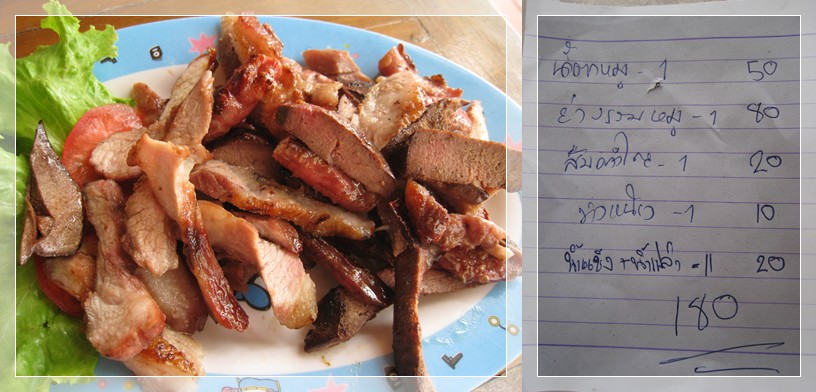 น้ำตกหมู - 1 50
ย่างรวมหมู - 1 80
ส้มตำไทย - 1 20
ข้าวเหนียว - 1 10
น้ำแข็ง + น้ำเปล่า - 11 20
180